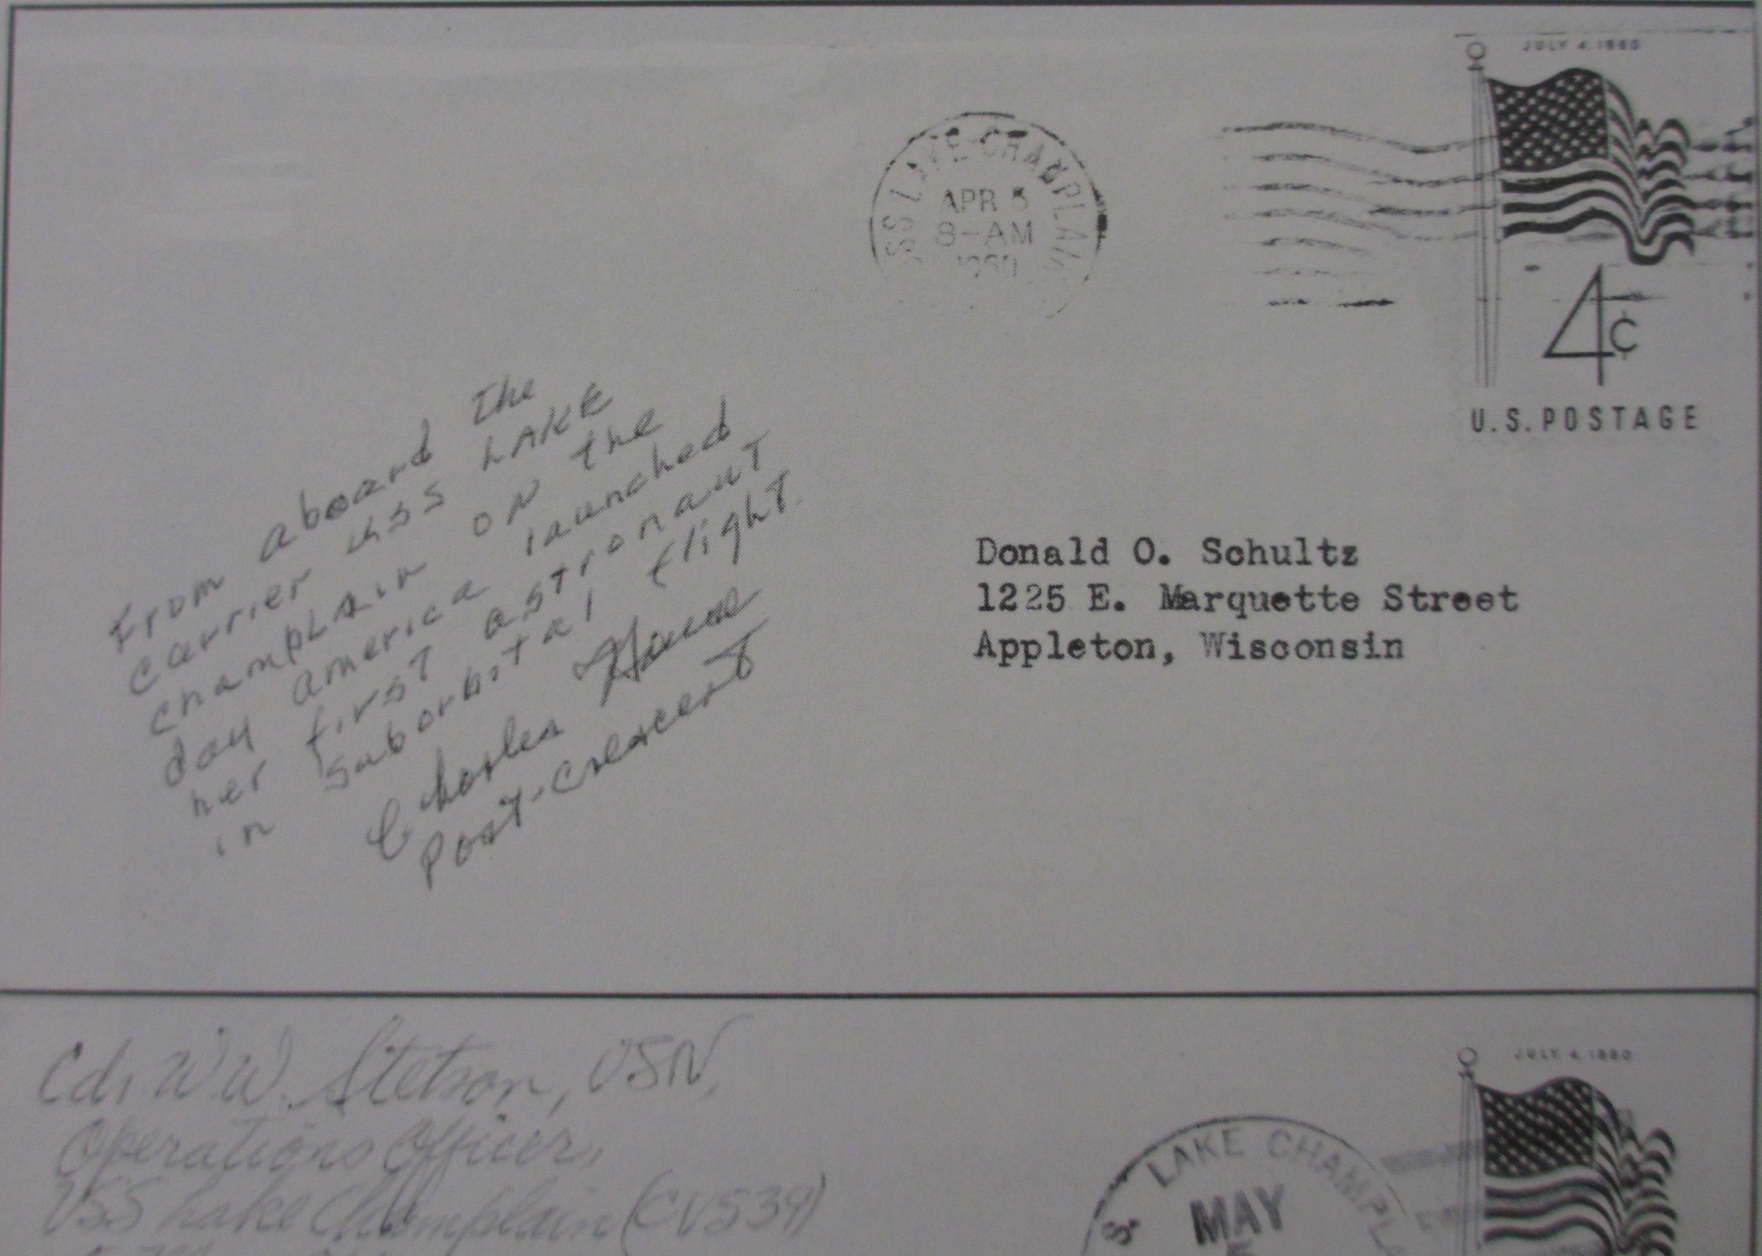 JULY 4, 1960
USS LAKE CHAMPLAIN
APR 5
8-AM
4¢
U.S. POSTAGE
From aboard the
carrier USS LAKE
champlain on the
day america launched
her first astronaut
in suborbital flight.
Charles
Post-Crescent
Donald O. Schultz
1225 E. Marquette Street
Appleton, Wisconsin
Cdr W W. Stetson, USN,
Operations Officer,
USS Lake Champlain (CVS39)
JULY 4, 1960
S. LAKE CHAMPLA
MAY